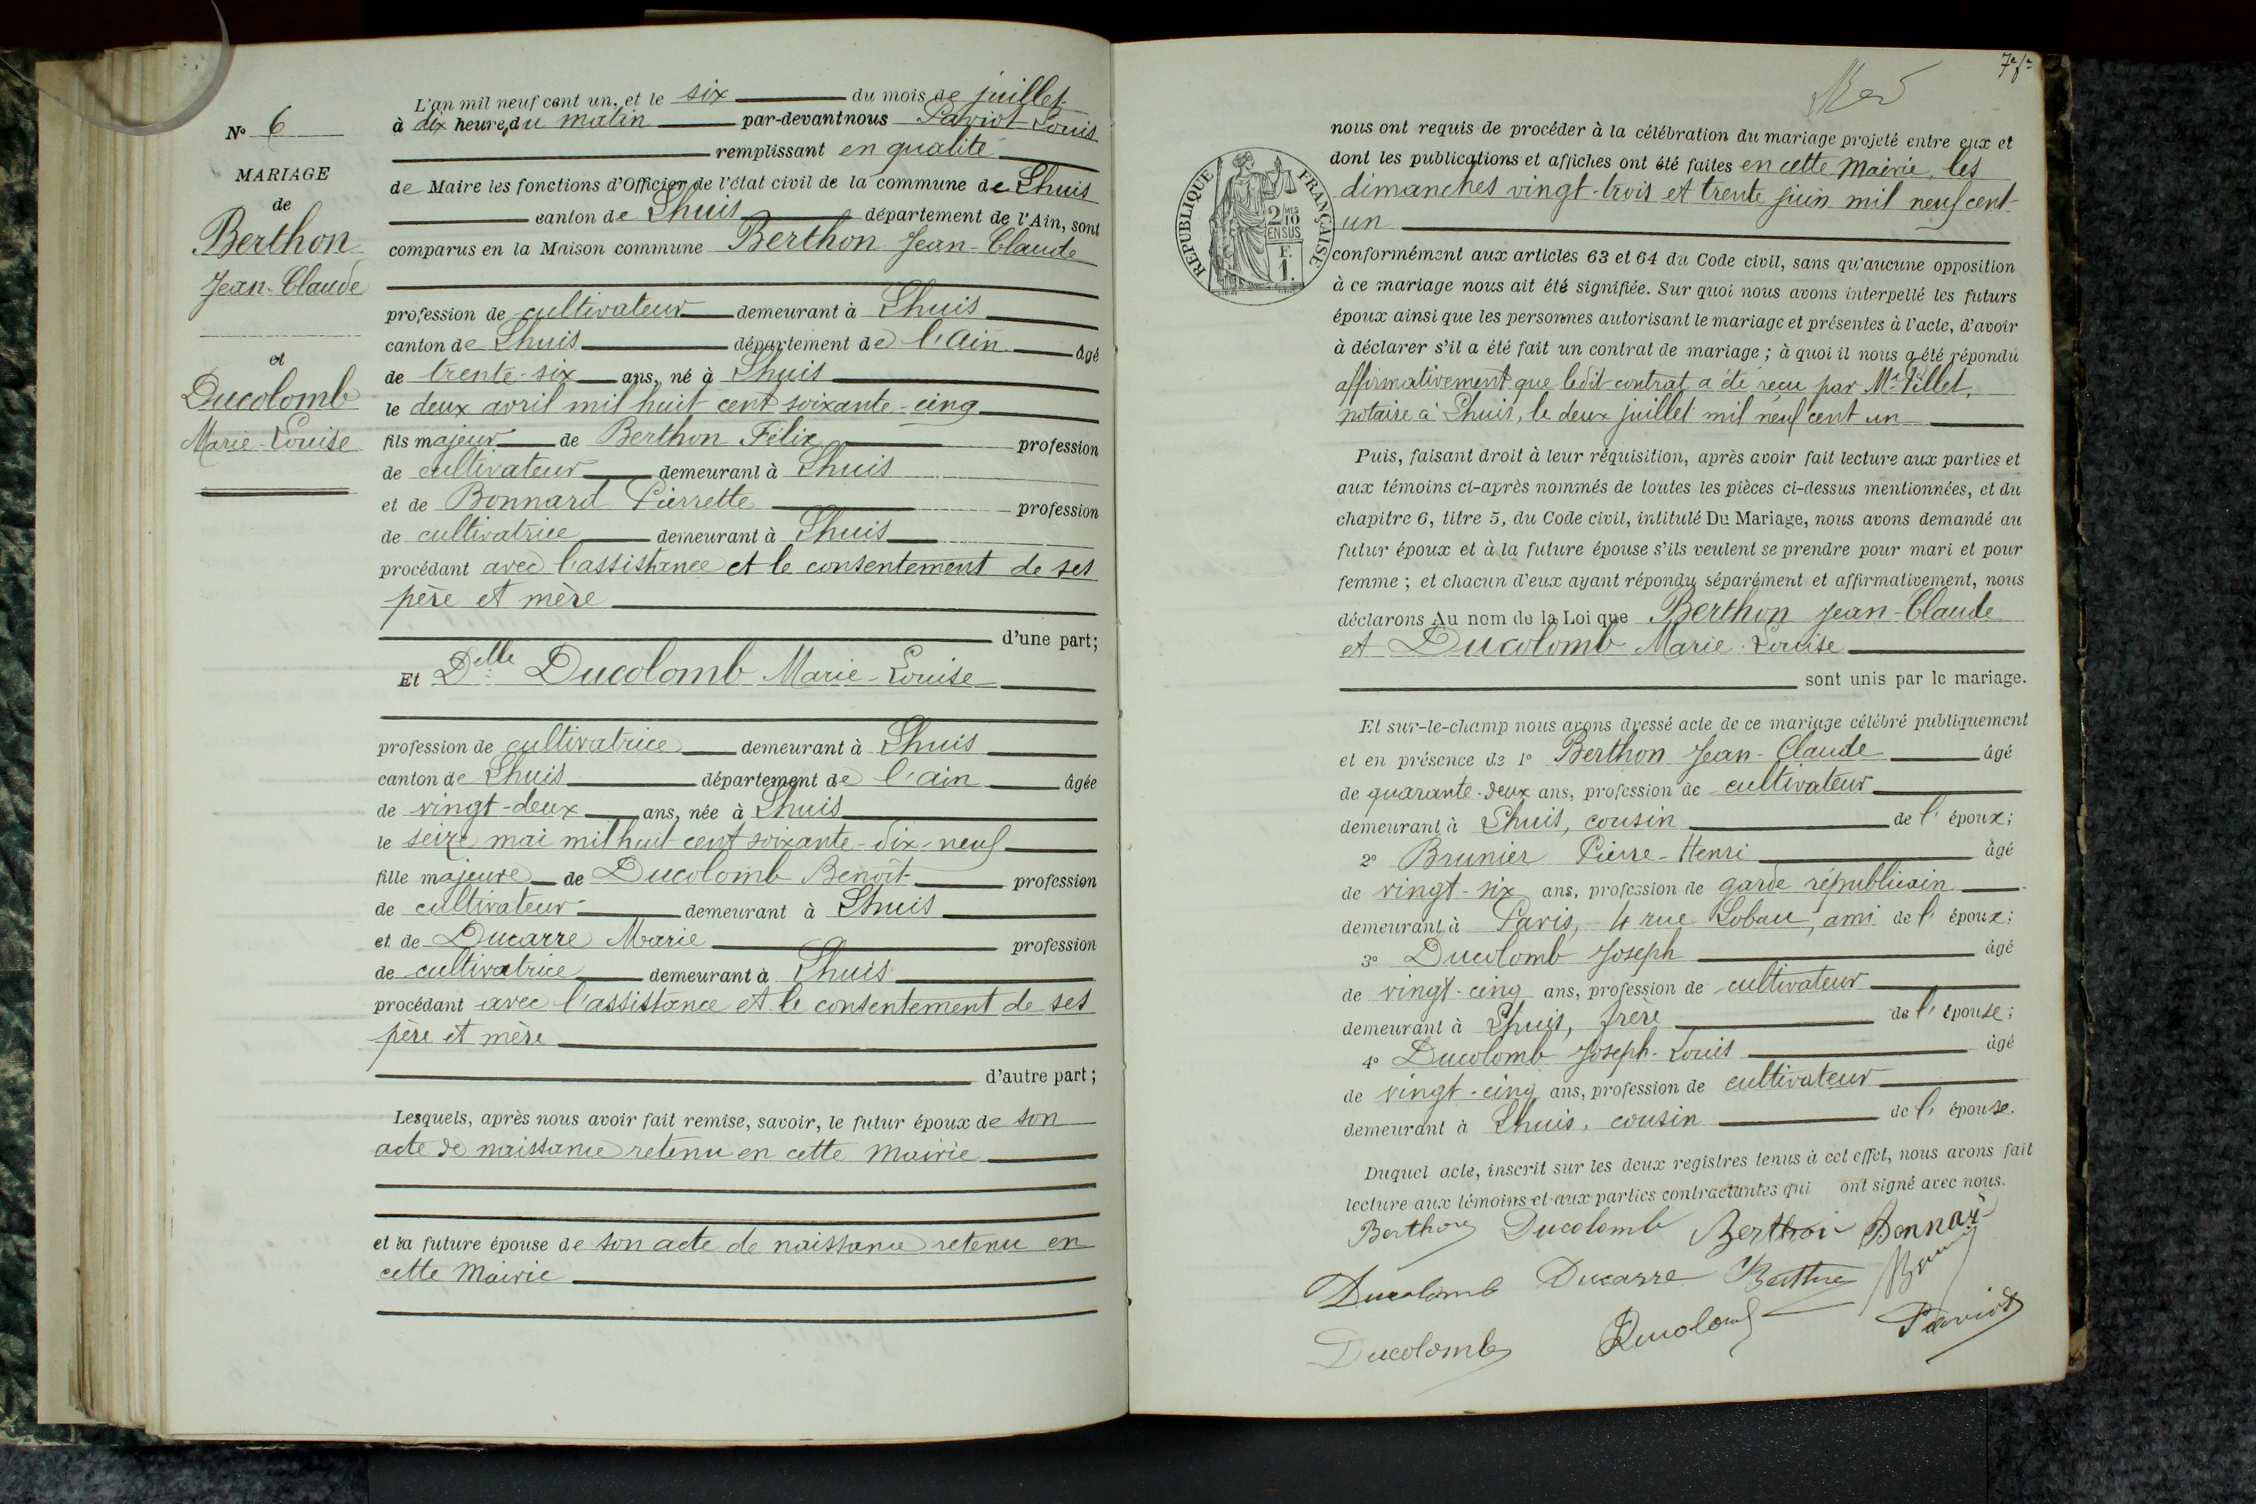 N° 6
MARIAGE
de
Berthon
Jean-Claude
et
Ducolomb
Marie-Louise
L'an mil neuf cent un, et le six du mois de juillet
à dix heures du matin par-devant nous Paviot Louis
remplissant en qualité
de Maire les fonctions d'Officier de l'état civil de la commune de Lhuis
canton de Lhuis département de l'Ain, sont
comparus en la Maison commune Berthon Jean-Claude
profession de cultivateur demeurant à Lhuis
canton de Lhuis département de l'Ain âgé
de trente-six ans, né à Lhuis
le deux avril mil huit cent soixante-cinq
fils majeur de Berthon Félix profession
de cultivateur demeurant à Lhuis
et de Bonnard Pierrette profession
de cultivatrice demeurant à Lhuis
procédant avec l'assistance et le consentement de ses
père et mère
d'une part;
Et Delle Ducolomb Marie-Louise
profession de cultivatrice demeurant à Lhuis
canton de Lhuis département de l'ain âgée
de vingt-deux ans, née à Lhuis
le seize mai mil huit cent soixante-dix-neuf
fille majeure de Ducolomb Benoît profession
de cultivateur demeurant à Lhuis
et de Ducarre Marie profession
de cultivatrice demeurant à Lhuis
procédant avec l'assistance et le consentement de ses
père et mère
d'autre part;
Lesquels, après nous avoir fait remise, savoir, le futur époux de son
acte de naissance retenu en cette Mairie
et la future épouse de son acte de naissance retenu en
cette Mairie
RÉPUBLIQUE FRANÇAISE
2/10
EN SUS
F.
1.
nous ont requis de procéder à la célébration du mariage projeté entre eux et
dont les publications et affiches ont été faites en cette Mairie, les
dimanches vingt-trois et trente juin mil neuf cent
un
conformément aux articles 63 et 64 du Code civil, sans qu'aucune opposition
à ce mariage nous ait été signifiée. Sur quoi nous avons interpellé les futurs
époux ainsi que les personnes autorisant le mariage et présentes à l'acte, d'avoir
à déclarer s'il a été fait un contrat de mariage; à quoi il nous a été répondu
affirmativement que ledit contrat a été reçu par Me Tillet,
notaire à Lhuis, le deux juillet mil neuf cent un
Puis, faisant droit à leur réquisition, après avoir fait lecture aux parties et
aux témoins ci-après nommés de toutes les pièces ci-dessus mentionnées, et du
chapitre 6, titre 5, du Code civil, intitulé Du Mariage, nous avons demandé au
futur époux et à la future épouse s'ils veulent se prendre pour mari et pour
femme; et chacun d'eux ayant répondu séparément et affirmativement, nous
déclarons Au nom de la Loi que Berthon Jean-Claude
et Ducolomb Marie-Louise
sont unis par le mariage.
Et sur-le-champ nous avons dressé acte de ce mariage célébré publiquement
et en présence de 1° Berthon Jean-Claude âgé
de quarante-deux ans, profession de cultivateur
demeurant à Lhuis, cousin de l'époux;
2° Brunier Pierre-Henri âgé
de vingt-six ans, profession de garde républicain
demeurant à Paris, 4 rue Lobau, ami de l'époux;
3° Ducolomb Joseph âgé
de vingt-cinq ans, profession de cultivateur
demeurant à Lhuis, frère de l'épouse;
4° Ducolomb Joseph-Louis âgé
de vingt-cinq ans, profession de cultivateur
demeurant à Lhuis, cousin de l'épouse.
Duquel acte, inscrit sur les deux registres tenus à cet effet, nous avons fait
lecture aux témoins et aux parties contractantes qui ont signé avec nous.
Berthon Ducolomb Berthon Bonnard
Ducolomb Ducarre Berthon
Ducolomb Ducolomb Paviot